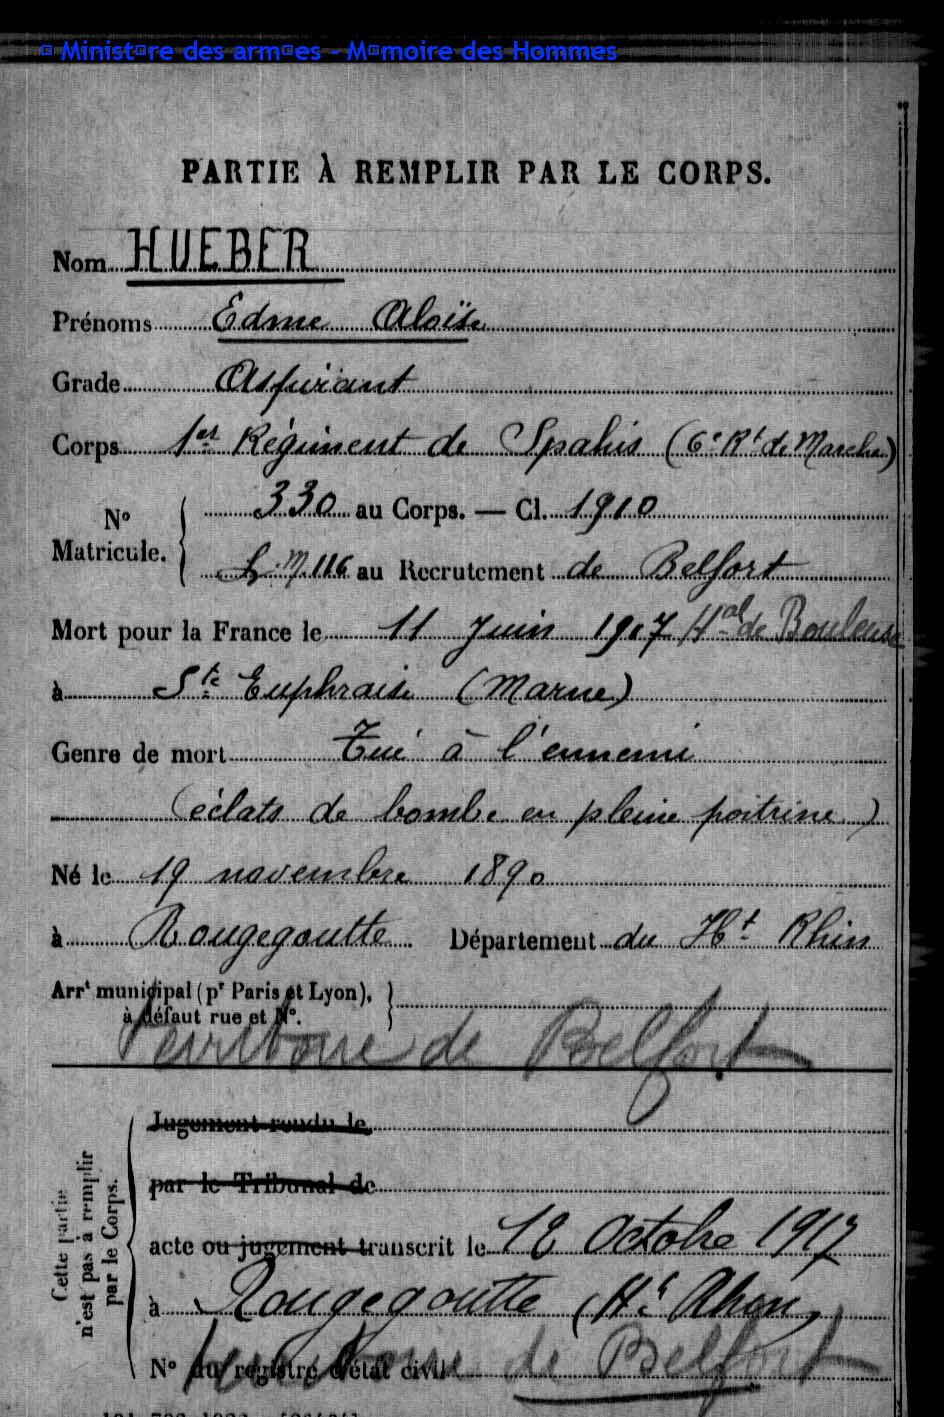 © Ministère des armées - Mémoire des Hommes
PARTIE À REMPLIR PAR LE CORPS.
Nom HUEBER
Prénoms Edme Aloïse
Grade Aspirant
Corps 1er Régiment de Spahis (6e Rt de Marche)
No Matricule. 330 au Corps. — Cl. 1910
L.M. 116 au Recrutement de Belfort
Mort pour la France le 11 Juin 1917 Hal de Bouleuse
à Ste Euphraise (Marne)
Genre de mort Tué à l'ennemi
(éclats de bombe en pleine poitrine)
Né le 19 novembre 1890
à Rougegoutte Département du Ht Rhin
Arrt municipal (pr Paris et Lyon),
à défaut rue et No.
Territoire de Belfort
Cette partie n'est pas à remplir par le Corps.
Jugement rendu le
par le Tribunal de
acte ou jugement transcrit le 12 Octobre 1917
à Rougegoutte (Ht Rhin)
No du registre d'état civil
Territoire de Belfort